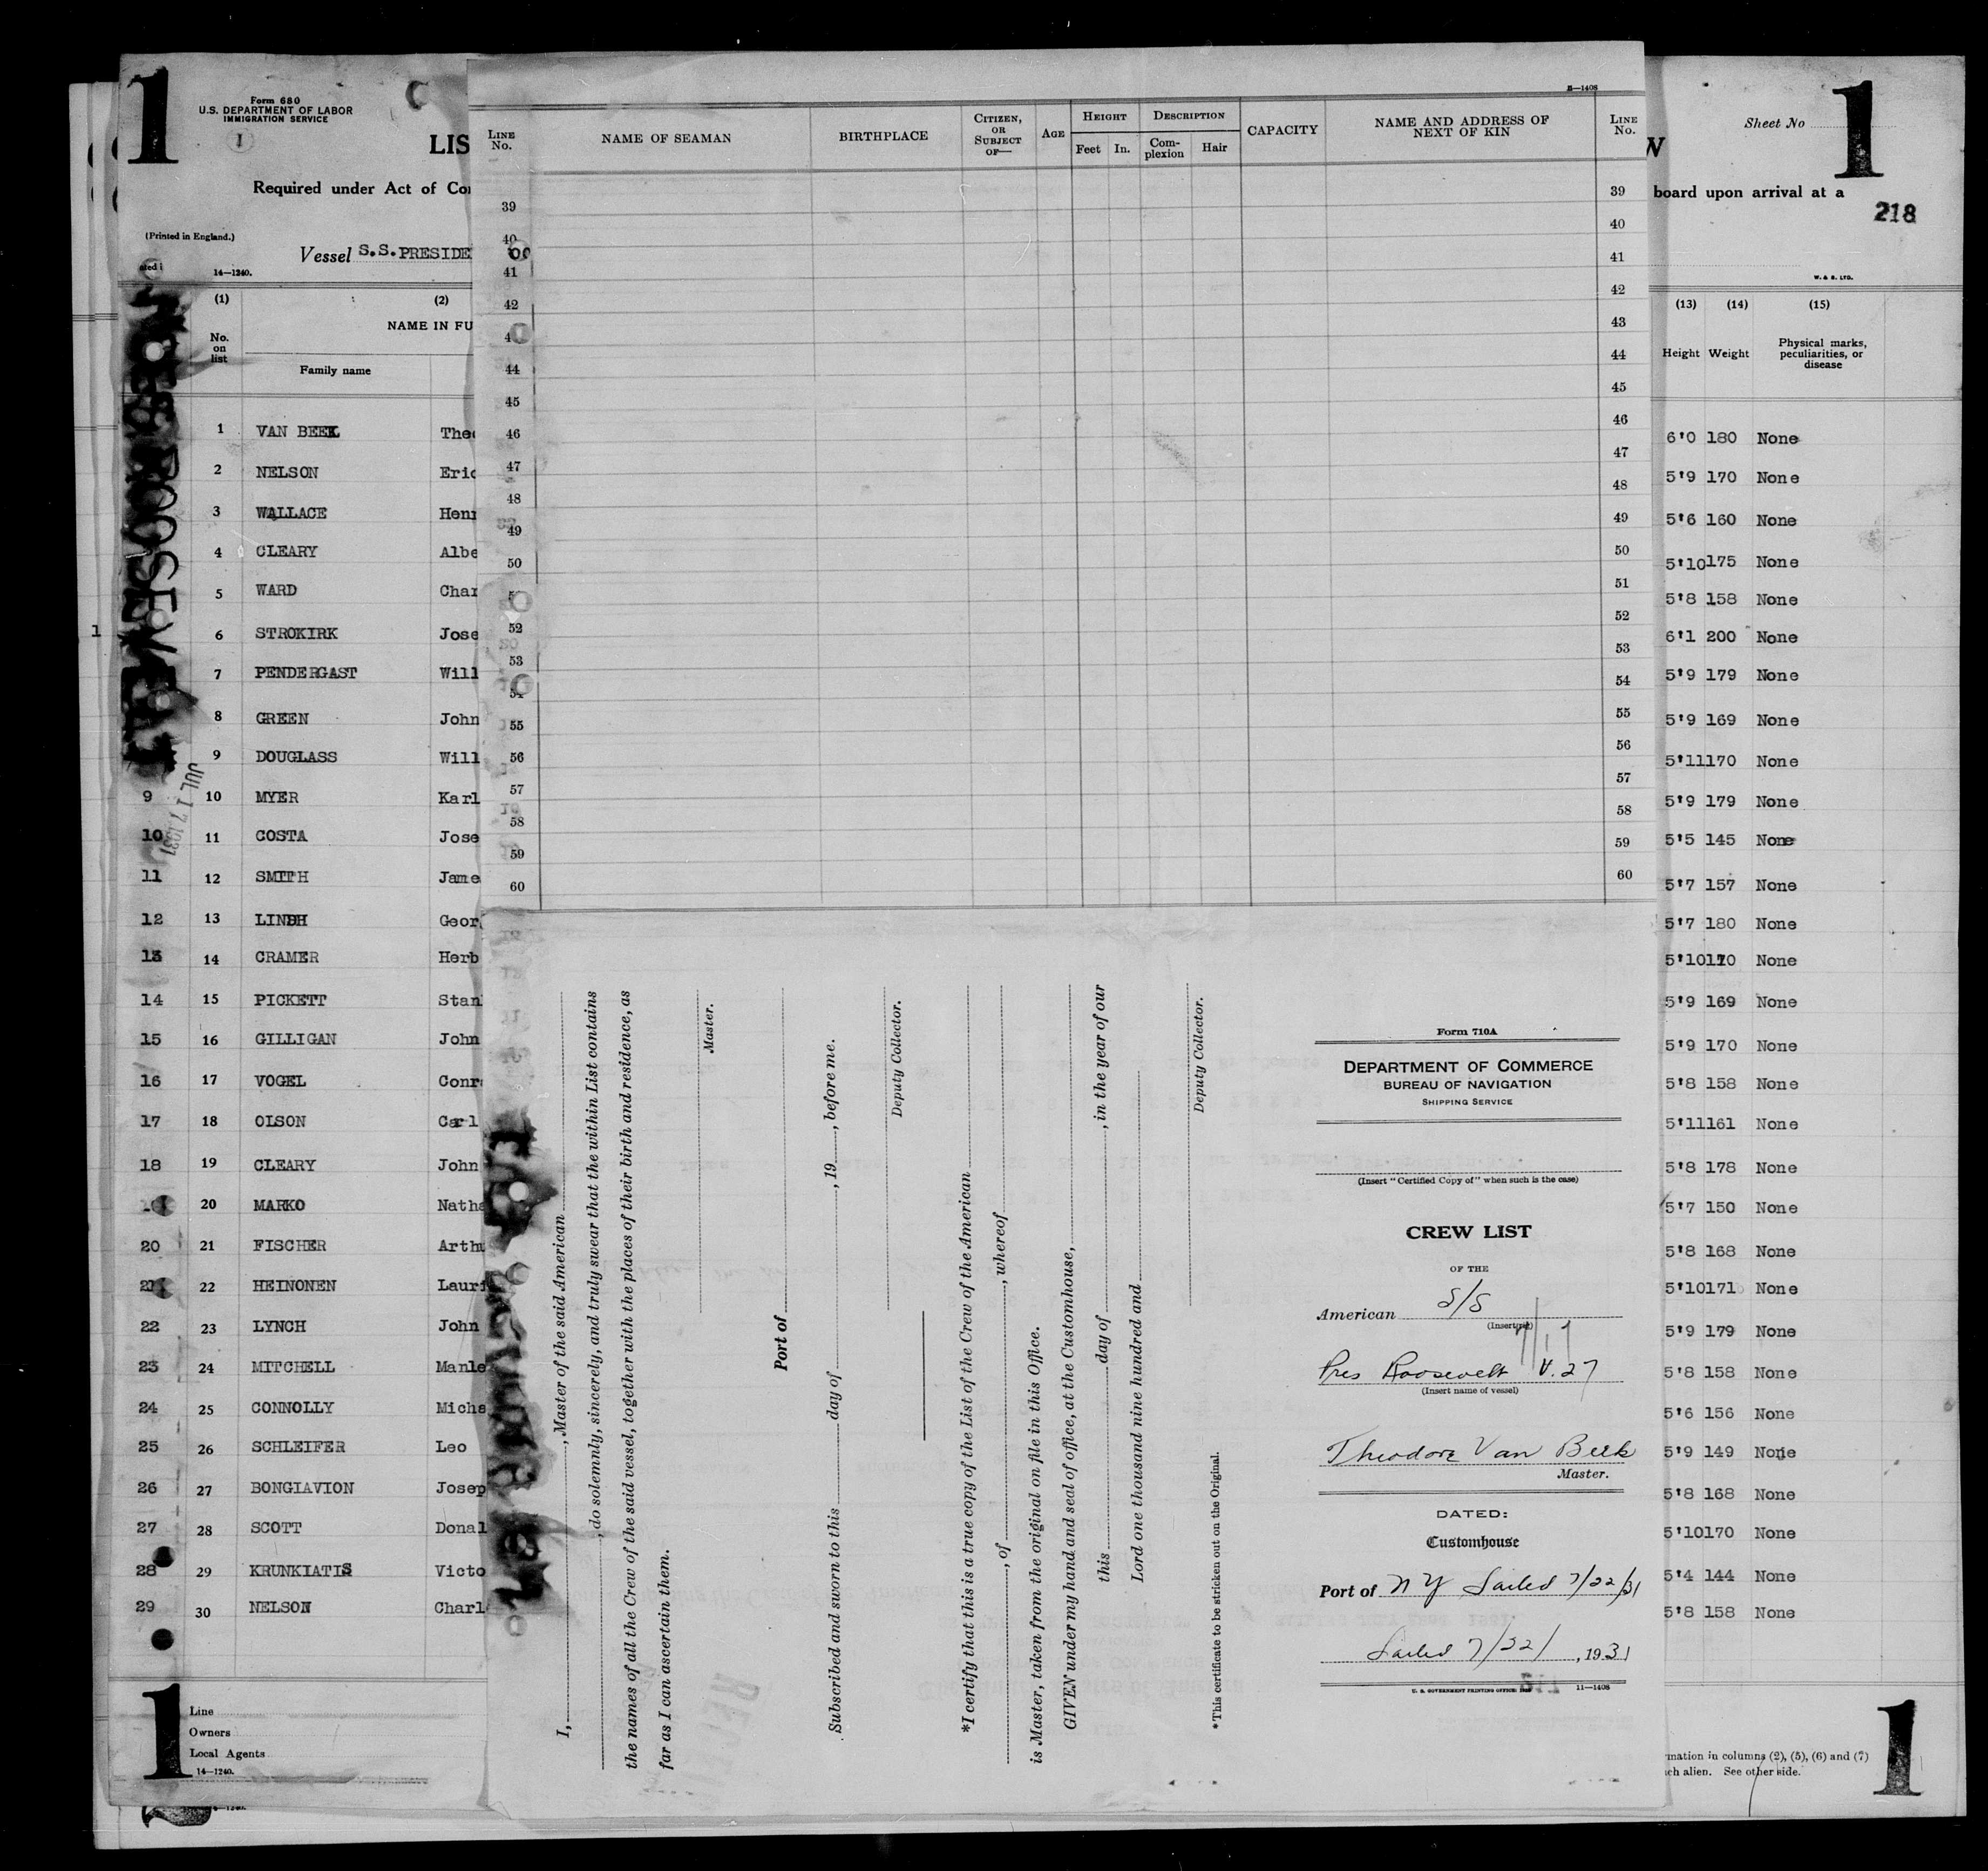 1
Form 680
U.S. DEPARTMENT OF LABOR
IMMIGRATION SERVICE
1
LIS
Required under Act of Co
(Printed in England.)
Vessel S.S. PRESIDE
14—1240.
(1) (2)
No. on list
NAME IN FU
Family name
1 VAN BEEK Theo
2 NELSON Eric
3 WALLACE Henr
4 CLEARY Albe
5 WARD Char
6 STROKIRK Jose
7 PENDERGAST Will
8 GREEN John
9 DOUGLASS Will
9 10 MYER Karl
10 11 COSTA Jose
11 12 SMITH Jame
12 13 LINDH Geor
13 14 CRAMER Herb
14 15 PICKETT Stan
15 16 GILLIGAN John
16 17 VOGEL Conr
17 18 OLSON Carl
18 19 CLEARY John
19 20 MARKO Natha
20 21 FISCHER Arthu
21 22 HEINONEN Lauri
22 23 LYNCH John
23 24 MITCHELL Manle
24 25 CONNOLLY Micha
25 26 SCHLEIFER Leo
26 27 BONGIAVION Josep
27 28 SCOTT Donal
28 29 KRUNKIATIS Victo
29 30 NELSON Charl
JUL 17 1931
1
Line
Owners
Local Agents
14—1240.
1
B—1408
LINE No.
NAME OF SEAMAN
BIRTHPLACE
CITIZEN, OR SUBJECT OF—
AGE
HEIGHT
Feet In.
DESCRIPTION
Complexion Hair
CAPACITY
NAME AND ADDRESS OF NEXT OF KIN
LINE No.
39 39
40 40
41 41
42 42
43
44 44
45 45
46 46
47 47
48 48
49 49
50 50
51
52 52
53 53
54 54
55 55
56 56
57 57
58 58
59 59
60 60
I, , Master of the said American
, do solemnly, sincerely, and truly swear that the within List contains
the names of all the Crew of the said vessel, together with the places of their birth and residence, as
far as I can ascertain them.
Master.
Port of
Subscribed and sworn to this day of , 19 , before me.
Deputy Collector.
*I certify that this is a true copy of the List of the Crew of the American
, of , whereof
is Master, taken from the original on file in this Office.
GIVEN under my hand and seal of office, at the Customhouse,
this day of , in the year of our
Lord one thousand nine hundred and
Deputy Collector.
*This certificate to be stricken out on the Original.
Form 710A
DEPARTMENT OF COMMERCE
BUREAU OF NAVIGATION
SHIPPING SERVICE
(Insert "Certified Copy of" when such is the case)
CREW LIST
OF THE
American S/S
(Insert rig)
Pres Roosevelt V.27
(Insert name of vessel)
Theodore Van Beek
Master.
DATED:
Customhouse
Port of N Y Sailed 7/22/31
Sailed 7/22/, 1931
U. S. GOVERNMENT PRINTING OFFICE: 11—1408
W
Sheet No
1
board upon arrival at a
218
W. & S. LTD.
(13) (14) (15)
Height Weight Physical marks, peculiarities, or disease
6'0 180 None
5'9 170 None
5'6 160 None
5'10 175 None
5'8 158 None
6'1 200 None
5'9 179 None
5'9 169 None
5'11 170 None
5'9 179 None
5'5 145 None
5'7 157 None
5'7 180 None
5'10 None
5'9 169 None
5'9 170 None
5'8 158 None
5'11 161 None
5'8 178 None
5'7 150 None
5'8 168 None
5'10 171 None
5'9 179 None
5'8 158 None
5'6 156 None
5'9 149 None
5'8 168 None
5'10 170 None
5'4 144 None
5'8 158 None
mation in columns (2), (5), (6) and (7)
ch alien. See other side.
1